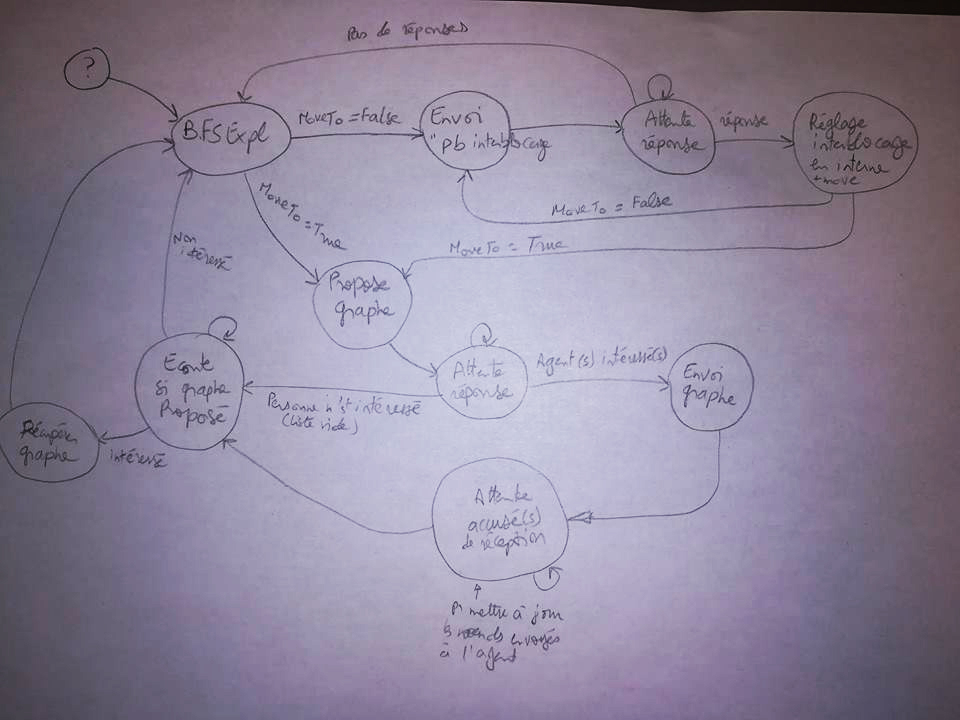 Pas de réponses
?
BFSExpl
MoveTo = False
Envoi
"pb interblocage
Attente
réponse
réponse
Réglage
interblocage
en interne
+ move
MoveTo = False
MoveTo = True
MoveTo = True
Non
intéréssé
Propose
graphe
Ecoute
si graphe
Proposé
Attente
réponse
Agent(s) intéréssé(s)
Envoi
graphe
Personne n'st intéréssé
(liste vide)
Récupérer
graphe
intéréssé
Attente
accusé(s)
de réception
Pr mettre à jour
envoyés
à l'agent